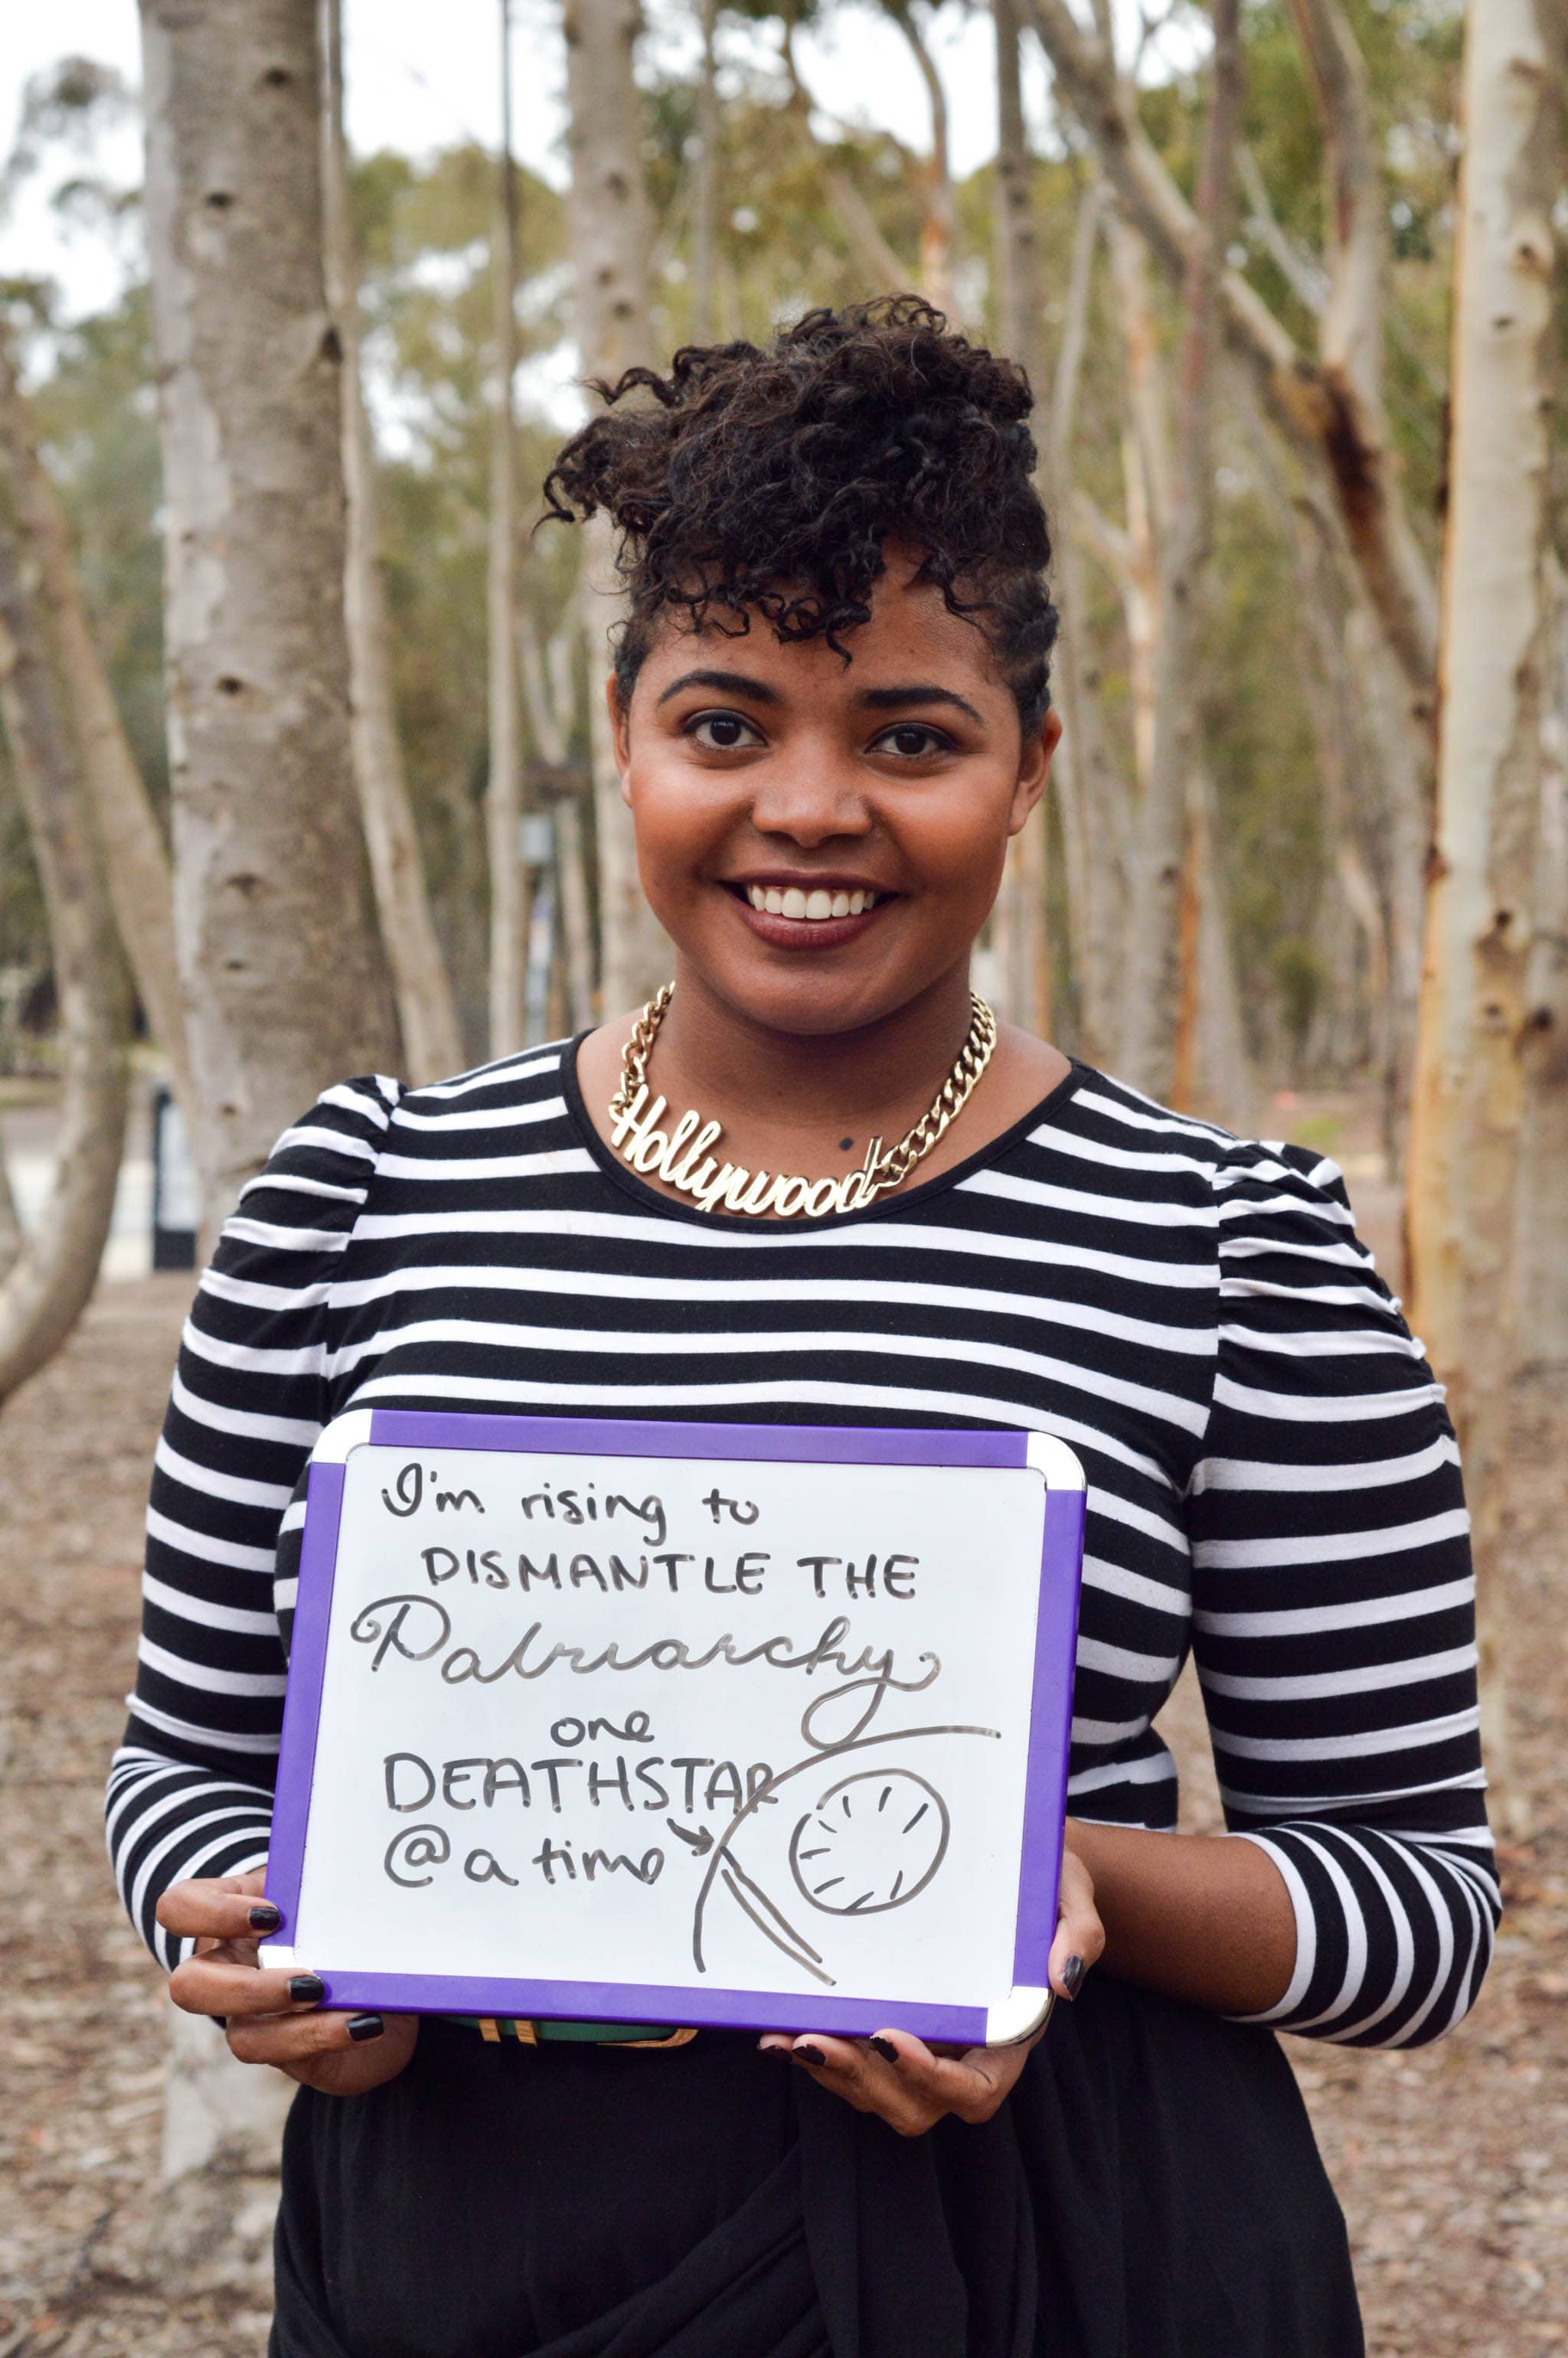 Hollywood
I'm rising to
DISMANTLE THE
Patriarchy
one
DEATHSTAR
@ a time